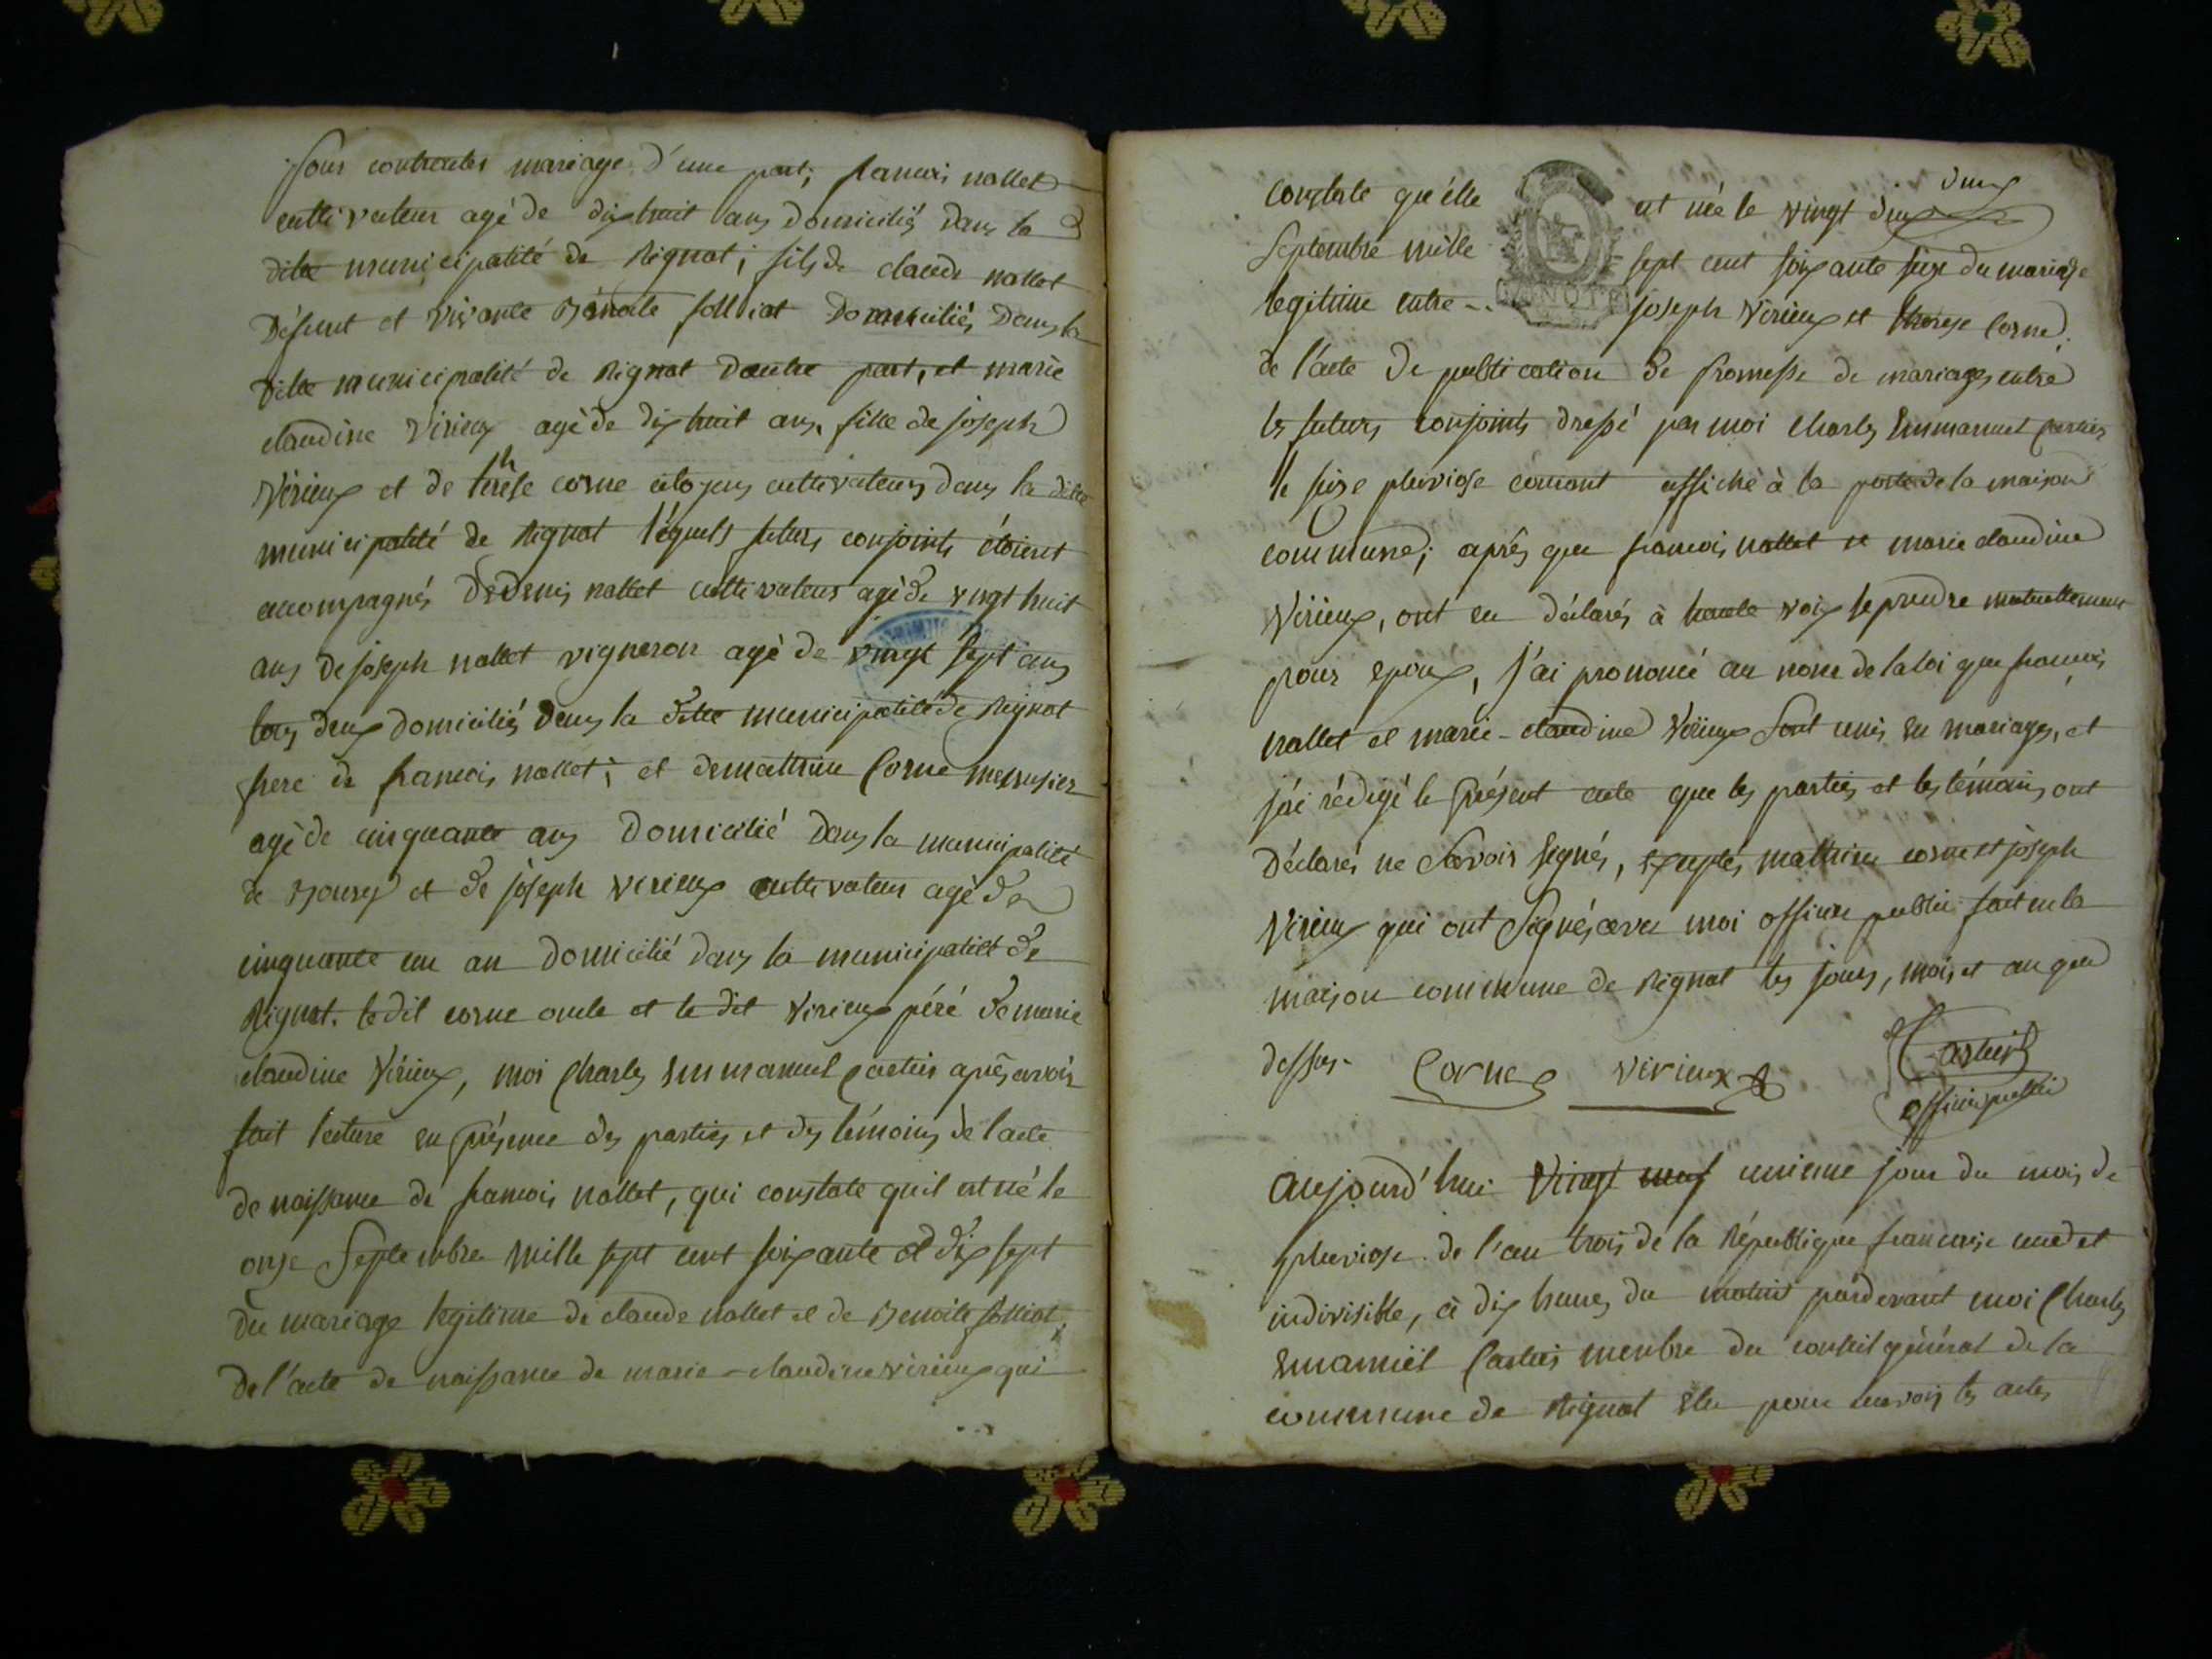 pour contracter mariage d'une part, francois nallet
cultivateur agé de dix huit ans domiciliés dans la
dite municipalité de Rignat; fils de claude nallet
défunt et vivante Benoite folliat domiciliés dans la
ditte municipalité de Rignat dautre part, et marie
claudine Virieux agé de dix huit ans, fille de joseph
Virieux et de therese corne citoyens cultivateurs dans la ditte
municipalité de Rignat léquels futurs conjoints étoient
accompagnés de denis nallet cultivateur agé de vingt huit
ans de joseph nallet vigneron agé de vingt sept ans
tous deux domiciliés dans la ditte municipalité de Rignat
frere de francois nallet; et de mathieu Corne menusier
agé de cinquante ans domicilié dans la municipalité
de et de joseph virieux cultivateur agé de
cinquante un an domicilié dans la municipalité de
Rignat. le dit corne oncle et le dit Virieux péré de marie
claudine Virieux, moi Charles Emmanuel Cartier après avoir
fait lecture en présence des parties et des témoins de l'acte
de naissance de francois nallet, qui constate quil est né le
onze Septembre mille sept cent soixante et dix sept
du mariage legitime de claude nallet et de Benoite folliat
de l'acte de naissance de marie-claudine virieux qui
constate qu'elle est née le vingt deux
Septembre mille sept cent soixante seize du mariage
legitime entre -. joseph Virieux et therese Corne.
de l'acte de publication de promesse de mariages entre
les futurs conjoints dressé par moi Charles Emmanuel Cartier
le seize pluviose courant affiché à la porte de la maison
commune; après que francois nallet et marie claudine
Virieux, ont eu déclarés à haute voix se prendre mutuellement
pour epoux, j'ai prononcé au nom de la loi que francois
nallet et marie-claudine Virieux sont unis en mariages, et
j'ai rédigé le présent acte que les parties et les témoins ont
déclarés ne savoir signés, exceptés mathieu corne et joseph
Virieux qui ont signés avec moi officier public fait en la
maison commune de Rignat les jours, mois et an que
dessus. Corne virieux Cartier
officier public
Aujourd'hui vingt neuf unieme jour du mois de
pluviose de l'an trois de la République francaise une et
indivisible, à dix heures du matin pardevant moi Charles
Emanuel Cartier menbre du conseil général de la
commune de Rignat elu pour les actes